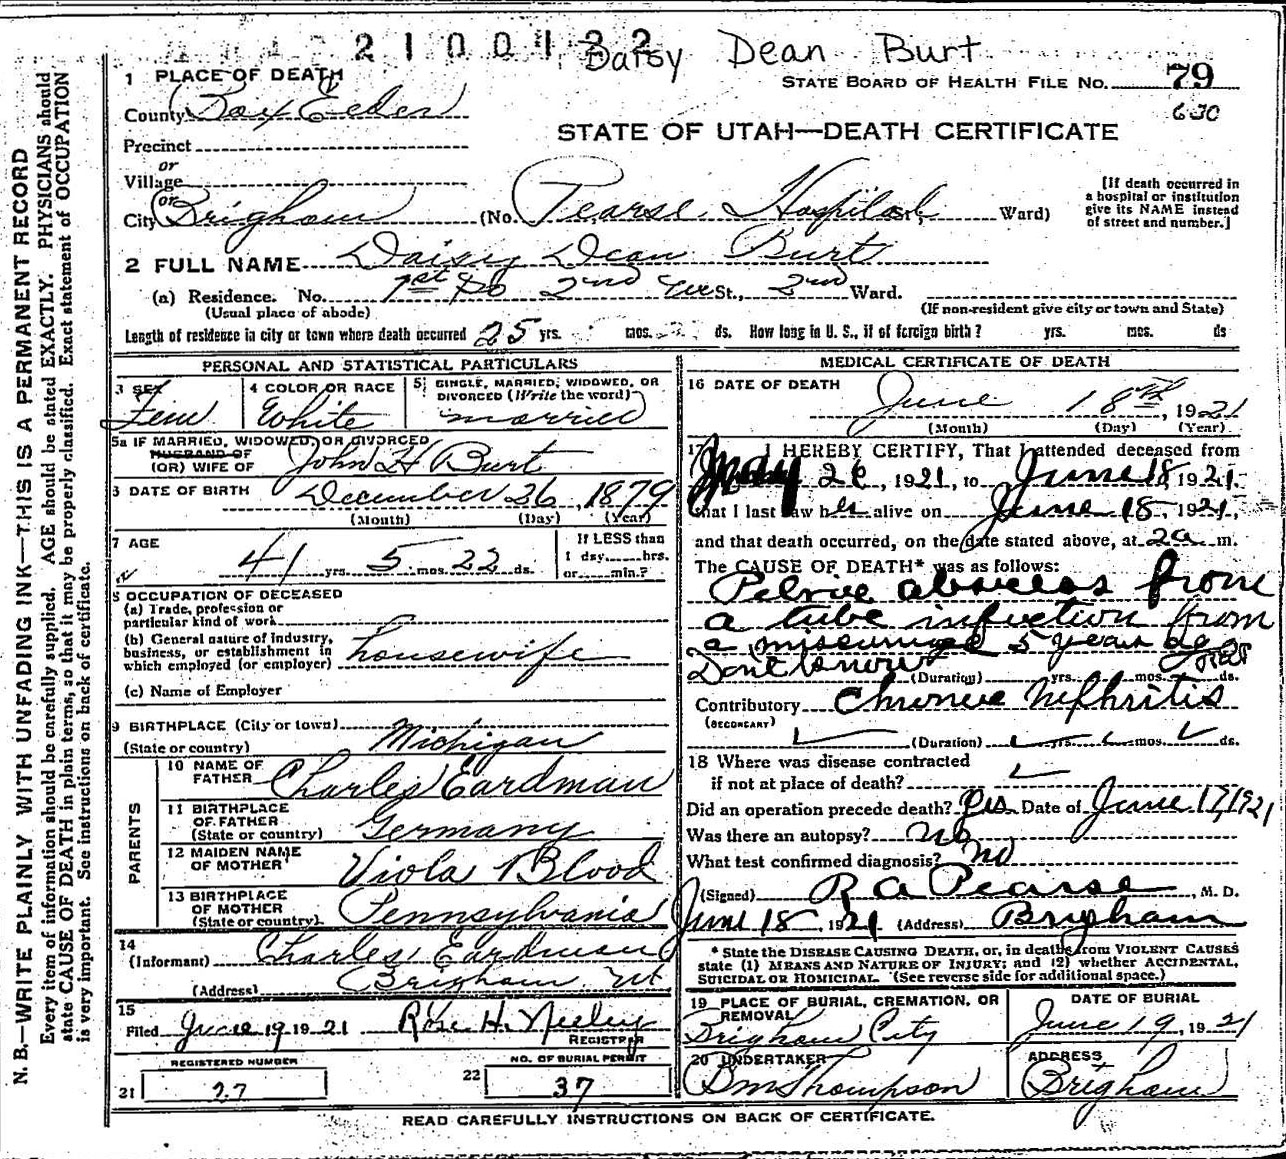 2100122
Daisy Dean Burt
1 PLACE OF DEATH
STATE BOARD OF HEALTH FILE NO. 79
County Box Elder
630
STATE OF UTAH—DEATH CERTIFICATE
Precinct
or
Village
or
City Brigham (No. Pearse Hospital St., Ward)
[If death occurred in
a hospital or institution
give its NAME instead
of street and number.]
2 FULL NAME Daisy Dean Burt
(a) Residence. No. 1st So 2nd St., 2nd Ward.
(Usual place of abode)
(If non-resident give city or town and State)
Length of residence in city or town where death occurred 25 yrs. mos. ds. How long in U. S., if of foreign birth? yrs. mos. ds
PERSONAL AND STATISTICAL PARTICULARS
3 SEX
Fem
4 COLOR OR RACE
White
5 SINGLE, MARRIED, WIDOWED, OR
DIVORCED (Write the word)
married
5a IF MARRIED, WIDOWED, OR DIVORCED
HUSBAND OF
(OR) WIFE OF John H Burt
6 DATE OF BIRTH December 26, 1879
(Month) (Day) (Year)
7 AGE
41 yrs. 5 mos. 22 ds.
If LESS than
1 day......hrs.
or......min.?
8 OCCUPATION OF DECEASED
(a) Trade, profession or
particular kind of work
(b) General nature of industry,
business, or establishment in
which employed (or employer) housewife
(c) Name of Employer
9 BIRTHPLACE (City or town)
(State or country) Michigan
PARENTS
10 NAME OF
FATHER Charles Eardman
11 BIRTHPLACE
OF FATHER
(State or country) Germany
12 MAIDEN NAME
OF MOTHER Viola Blood
13 BIRTHPLACE
OF MOTHER
(State or country) Pennsylvania
14
(Informant) Charles Eardman
(Address) Brigham Ut
15
Filed June 19 1921 Rose H. Neeley
REGISTRAR
REGISTERED NUMBER
21 27
NO. OF BURIAL PERMIT
22 37
MEDICAL CERTIFICATE OF DEATH
16 DATE OF DEATH
June 18th, 1921
(Month) (Day) (Year)
17 I HEREBY CERTIFY, That I attended deceased from
May , 1921, to June 18 1921.
that I last saw her alive on June 18, 1921,
and that death occurred, on the date stated above, at 2a m.
The CAUSE OF DEATH* was as follows:
Pelvic abscess from
a tube infection from
a miscarriage 5 years ago
Dont know
(Duration) yrs. mos. ds.
Contributory Chronic Nephritis
(SECONDARY)
(Duration) yrs. mos. ds.
18 Where was disease contracted
if not at place of death?
Did an operation precede death? Yes Date of June 17 1921
Was there an autopsy? no
What test confirmed diagnosis? no
(Signed) R A Pearse, M. D.
June 18, 1921 (Address) Brigham
* State the DISEASE CAUSING DEATH, or, in deaths from VIOLENT CAUSES
state (1) MEANS AND NATURE OF INJURY; and (2) whether ACCIDENTAL,
SUICIDAL OR HOMICIDAL. (See reverse side for additional space.)
19 PLACE OF BURIAL, CREMATION, OR
REMOVAL
Brigham City
DATE OF BURIAL
June 19, 1921
20 UNDERTAKER
Thompson
ADDRESS
Brigham
READ CAREFULLY INSTRUCTIONS ON BACK OF CERTIFICATE.
N. B.—WRITE PLAINLY WITH UNFADING INK—THIS IS A PERMANENT RECORD
Every item of information should be carefully supplied. AGE should be stated EXACTLY. PHYSICIANS should
state CAUSE OF DEATH in plain terms, so that it may be properly classified. Exact statement of OCCUPATION
is very important. See instructions on back of certificate.